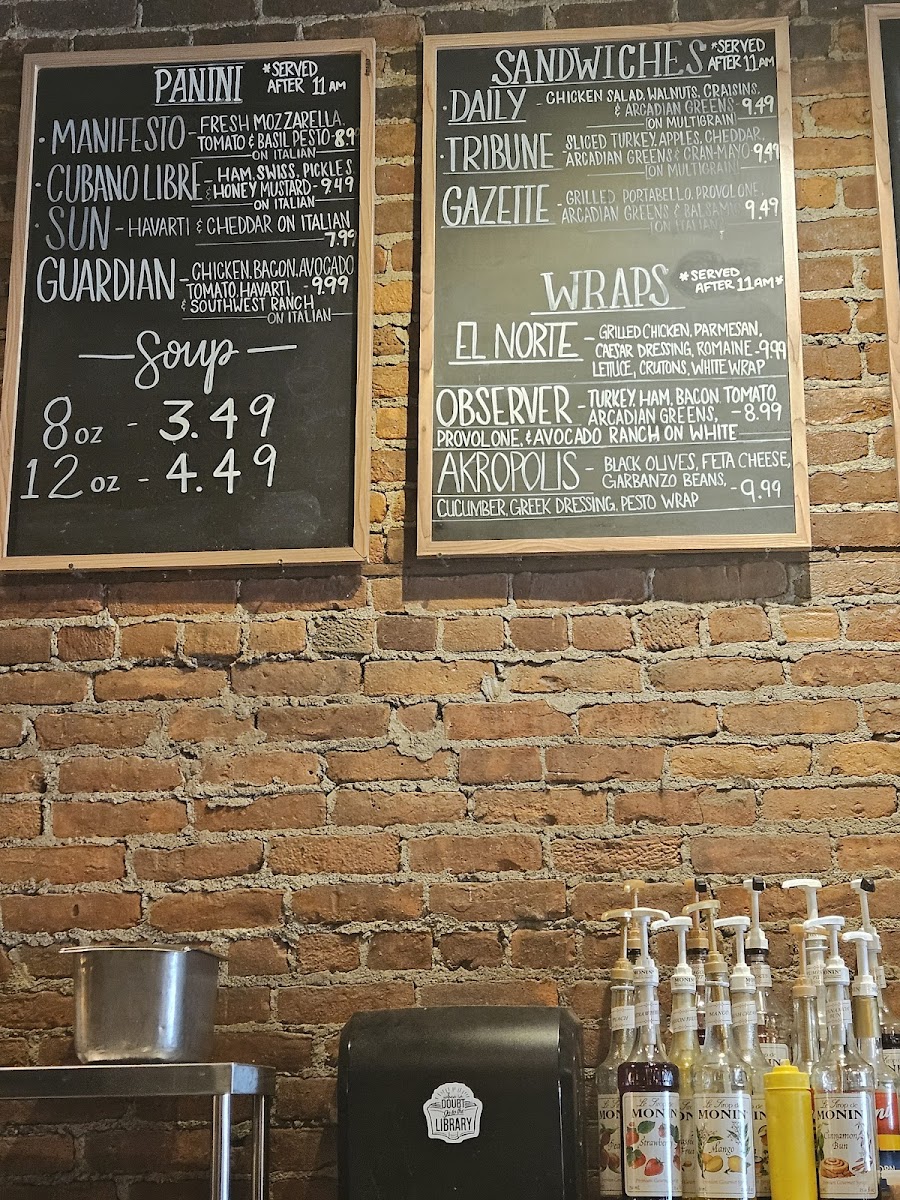 PANINI *SERVED
AFTER 11 AM
· MANIFESTO - FRESH MOZZARELLA,
TOMATO & BASIL PESTO - 8.9
ON ITALIAN
· CUBANO LIBRE - HAM, SWISS, PICKLES
& HONEY MUSTARD - 9.49
ON ITALIAN
· SUN - HAVARTI & CHEDDAR ON ITALIAN
7.99
GUARDIAN - CHICKEN, BACON, AVOCADO
TOMATO, HAVARTI, - 9.99
& SOUTHWEST RANCH
ON ITALIAN
— Soup —
8 oz - 3.49
12 oz - 4.49
SANDWICHES *SERVED
AFTER 11 AM
· DAILY - CHICKEN SALAD, WALNUTS, CRAISINS,
& ARCADIAN GREENS - 9.49
ON MULTIGRAIN
· TRIBUNE SLICED TURKEY, APPLES, CHEDDAR,
ARCADIAN GREENS & CRAN-MAYO - 9.49
ON MULTIGRAIN
GAZETTE - GRILLED PORTABELLO, PROVOLONE,
ARCADIAN GREENS & BALSAMIC 9.49
ON ITALIAN
WRAPS *SERVED
AFTER 11 AM*
EL NORTE - GRILLED CHICKEN, PARMESAN,
CAESAR DRESSING, ROMAINE - 9.99
LETTUCE, CRUTONS, WHITE WRAP
OBSERVER - TURKEY, HAM, BACON, TOMATO
ARCADIAN GREENS, - 8.99
PROVOLONE, & AVOCADO RANCH ON WHITE
AKROPOLIS - BLACK OLIVES, FETA CHEESE,
GARBANZO BEANS, - 9.99
CUCUMBER, GREEK DRESSING, PESTO WRAP
DOUBT
Go to the
LIBRARY
MONIN
MANGO
MONIN
Strawberry
MONIN
Mango
MONIN
Cinnamon
Bun